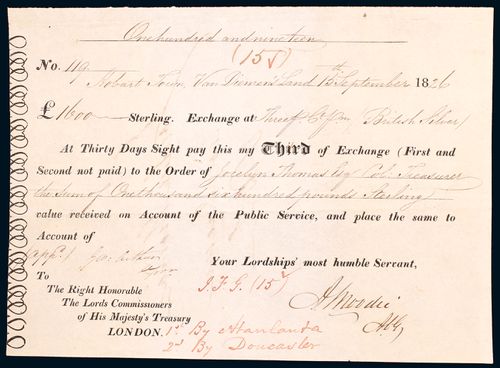 One hundred and nineteen
(15)
No. 119
Hobart Town, Van Diemen's Land 15th September 1826
£1600 Sterling. Exchange at Three British Silver
At Thirty Days Sight pay this my Third of Exchange (First and
Second not paid) to the Order of Jocelyn Thomas Esq Col. Treasurer
the Sum of One thousand six hundred pounds Sterling
value received on Account of the Public Service, and place the same to
Account of
Geo: Arthur
Your Lordships' most humble Servant,
To
The Right Honorable
The Lords Commissioners
of His Majesty's Treasury
LONDON.
J.F.G. (15)
A Moodie
ACG
1st By
2d By Doncaster